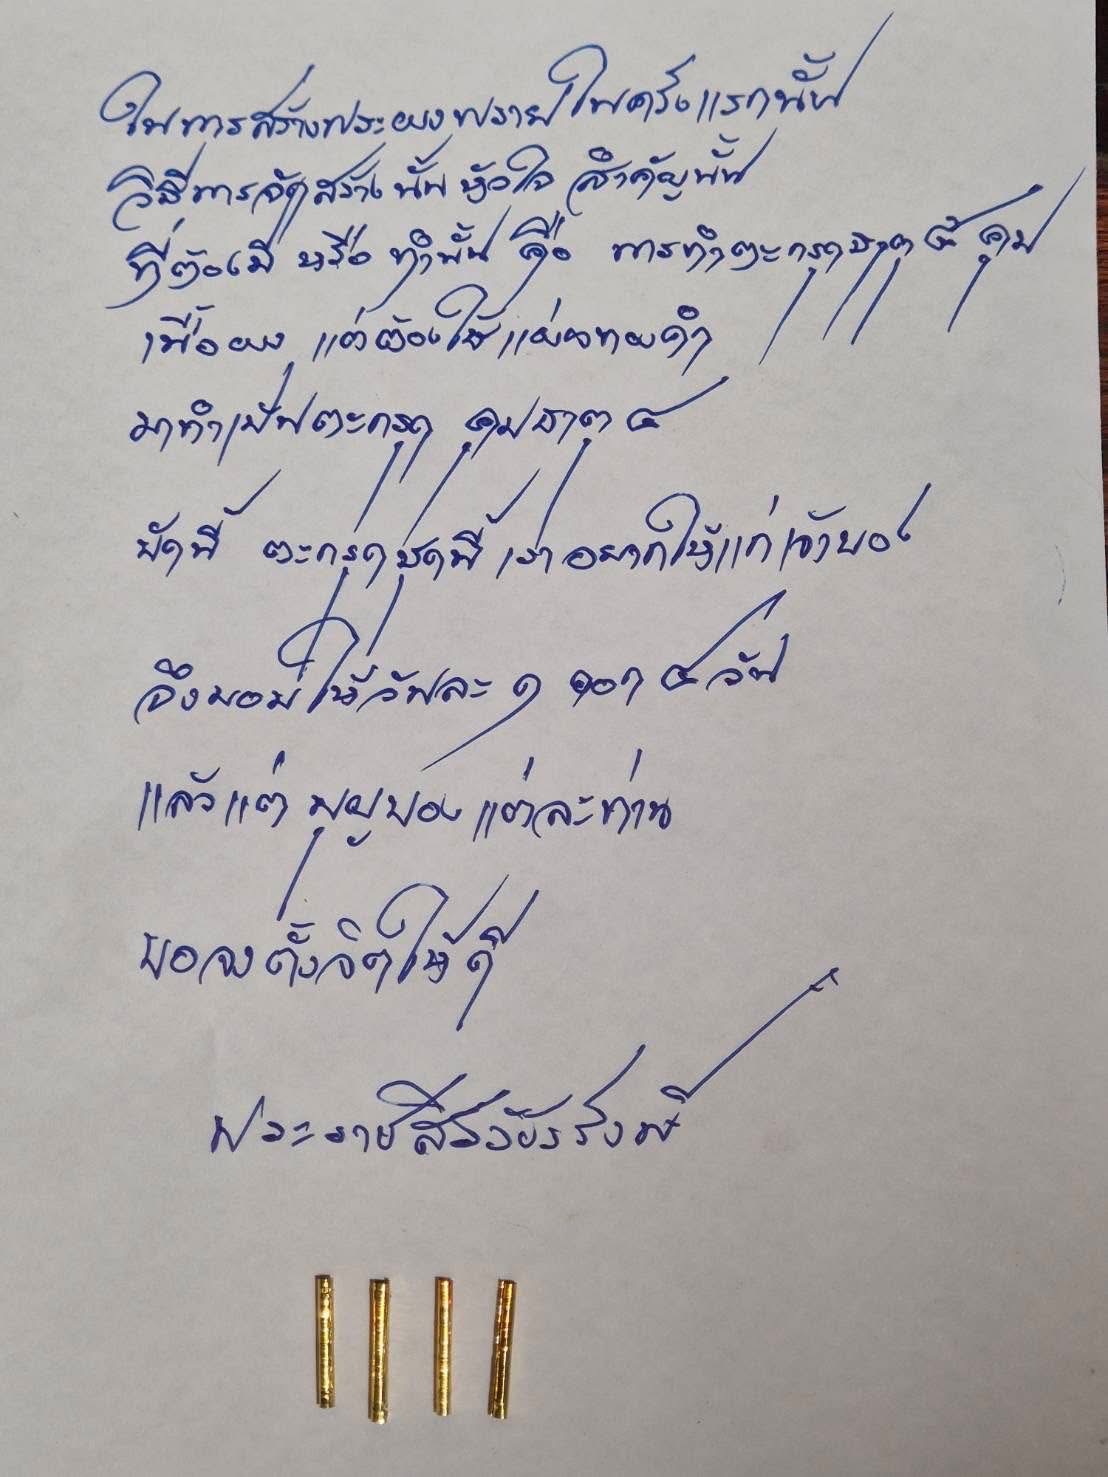 ในการสร้างพระผงพรายในครั้งแรกนั้น
วิธีการจัดสร้างนั้น หัวใจ สำคัญนั้น
ที่ต้องมี หรือ ทำนั้น คือ การทำตะกรุดธาตุ ๔ คุม
เนื้อผง แต่ต้องใช้แผ่นทองคำ
มาทำเป็นตะกรุด คุมธาตุ ๔
บัดนี้ ตะกรุดชุดนี้ เราอยากให้แก่เจ้าของ
จึงมอบให้วันละ ๑ ดอก ๔ วัน
แล้วแต่ บุญของแต่ละท่าน
ขอจงตั้งจิตให้ดี